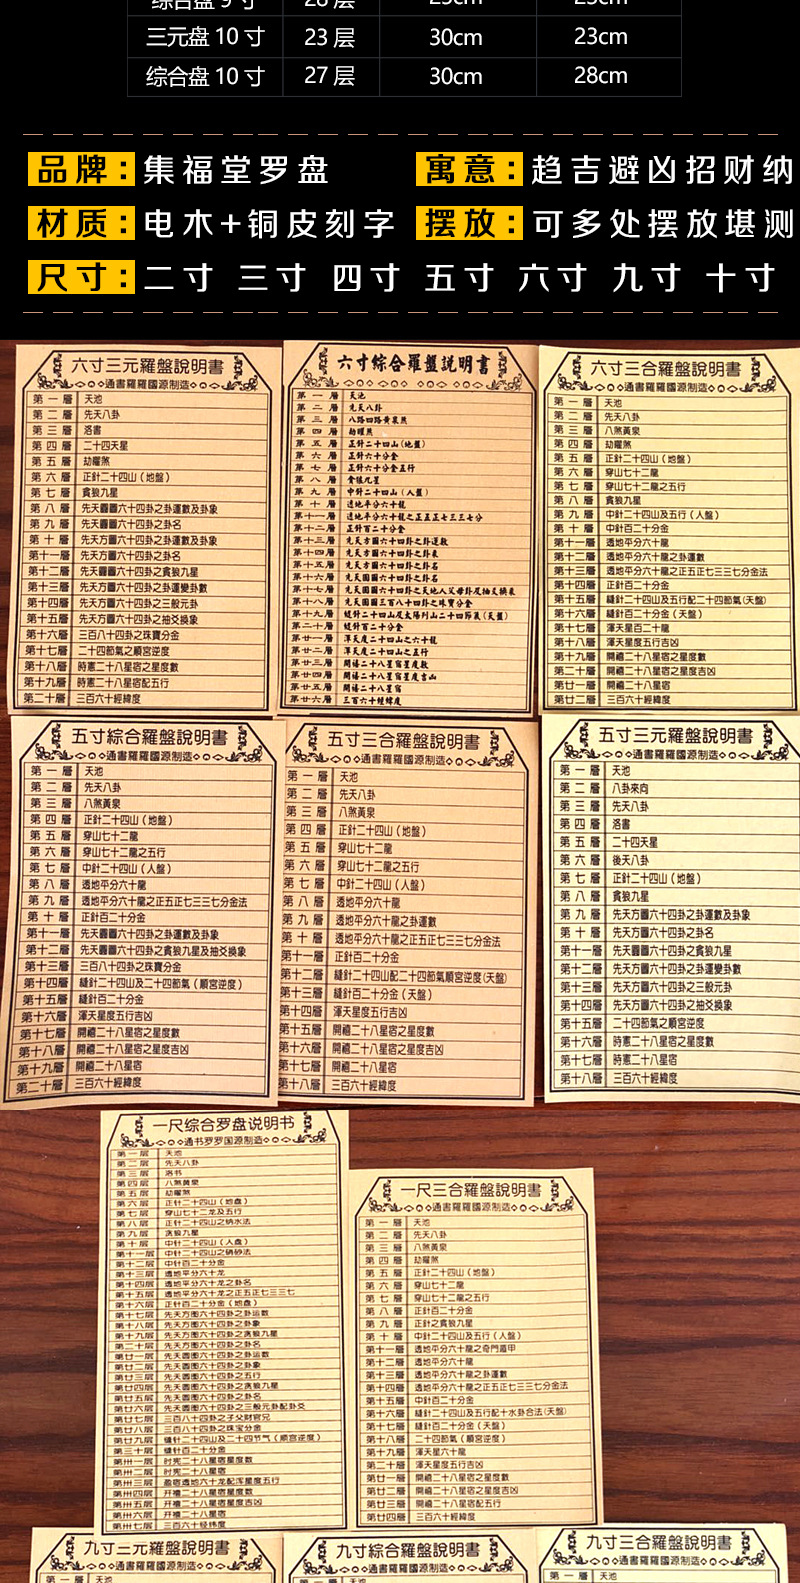 综合盘 9 寸 28 层 25cm 25cm
三元盘 10 寸 23 层 30cm 23cm
综合盘 10 寸 27 层 30cm 28cm
品牌: 集福堂罗盘 寓意: 趋吉避凶招财纳
材质: 电木+铜皮刻字 摆放: 可多处摆放堪测
尺寸: 二寸 三寸 四寸 五寸 六寸 九寸 十寸
六寸三元羅盤說明書
通書羅羅國源制造
第一層 天池
第二層 先天八卦
第三層 洛書
第四層 二十四天星
第五層 劫曜煞
第六層 正針二十四山(地盤)
第七層 貪狼九星
第八層 先天圓圖六十四卦之卦運數及卦象
第九層 先天圓圖六十四卦之卦名
第十層 先天方圖六十四卦之卦運數及卦象
第十一層 先天方圖六十四卦之卦名
第十二層 先天圓圖六十四卦之貪狼九星
第十三層 先天方圖六十四卦之卦運變卦數
第十四層 先天方圖六十四卦之三般元卦
第十五層 先天方圖六十四卦之抽爻換象
第十六層 三百八十四卦之珠寶分金
第十七層 二十四節氣之順宮逆度
第十八層 時憲二十八星宿之星度數
第十九層 時憲二十八星宿配五行
第二十層 三百六十經緯度
六寸綜合羅盤説明書
第一層 天池
第二層 先天八卦
第三層 八路四路黃泉煞
第四層 劫曜煞
第五層 正針二十四山(地盤)
第六層 正針六十分金
第七層 正針六十分金五行
第八層 貪狼九星
第九層 中針二十四山(人盤)
第十層 透地平分六十龍
第十一層 透地平分六十龍之正五正七三三七分
第十二層 正針百二十分金
第十三層 先天方圖六十四卦之卦運數
第十四層 先天方圖六十四卦之卦象
第十五層 先天方圖六十四卦之卦名
第十六層 先天圓圖六十四卦之卦名
第十七層 先天圓圖六十四卦之天地人父母卦及抽爻換象
第十八層 先天圓圖三百八十四卦之珠寶分金
第十九層 縫針二十四山及太陽到山二十四節氣(天盤)
第二十層 縫針百二十分金
第廿一層 渾天度二十四山之六十龍
第廿二層 渾天度二十四山之五行
第廿三層 開禧二十八星宿星度數
第廿四層 開禧二十八星宿星度吉凶
第廿五層 開禧二十八星宿
第廿六層 三百六十經緯度
六寸三合羅盤說明書
通書羅羅國源制造
第一層 天池
第二層 先天八卦
第三層 八煞黃泉
第四層 劫曜煞
第五層 正針二十四山(地盤)
第六層 穿山七十二龍
第七層 穿山七十二龍之五行
第八層 貪狼九星
第九層 中針二十四山及五行(人盤)
第十層 中針百二十分金
第十一層 透地平分六十龍
第十二層 透地平分六十龍之卦運數
第十三層 透地平分六十龍之正五正七三三七分金法
第十四層 正針百二十分金
第十五層 縫針二十四山及五行配二十四節氣(天盤)
第十六層 縫針百二十分金(天盤)
第十七層 渾天星百二十龍
第十八層 渾天星度五行吉凶
第十九層 開禧二十八星宿之星度數
第二十層 開禧二十八星宿之星度吉凶
第廿一層 開禧二十八星宿
第廿二層 三百六十經緯度
五寸綜合羅盤說明書
通書羅羅國源制造
第一層 天池
第二層 先天八卦
第三層 八煞黃泉
第四層 正針二十四山(地盤)
第五層 穿山七十二龍
第六層 穿山七十二龍之五行
第七層 中針二十四山(人盤)
第八層 透地平分六十龍
第九層 透地平分六十龍之正五正七三三七分金法
第十層 正針百二十分金
第十一層 先天圓圖六十四卦之卦運數及卦象
第十二層 先天圓圖六十四卦之貪狼九星及抽爻換象
第十三層 三百八十四卦之珠寶分金
第十四層 縫針二十四山及二十四節氣(順宮逆度)
第十五層 縫針百二十分金
第十六層 渾天星度五行吉凶
第十七層 開禧二十八星宿之星度數
第十八層 開禧二十八星宿之星度吉凶
第十九層 開禧二十八星宿
第二十層 三百六十經緯度
五寸三合羅盤說明書
通書羅羅國源制造
第一層 天池
第二層 先天八卦
第三層 八煞黃泉
第四層 正針二十四山(地盤)
第五層 穿山七十二龍
第六層 穿山七十二龍之五行
第七層 中針二十四山(人盤)
第八層 透地平分六十龍
第九層 透地平分六十龍之卦運數
第十層 透地平分六十龍之正五正七三三七分金法
第十一層 正針百二十分金
第十二層 縫針二十四山配二十四節氣順宮逆度(天盤)
第十三層 縫針百二十分金(天盤)
第十四層 渾天星度五行吉凶
第十五層 開禧二十八星宿之星度數
第十六層 開禧二十八星宿之星度吉凶
第十七層 開禧二十八星宿
第十八層 三百六十經緯度
五寸三元羅盤說明書
通書羅羅國源制造
第一層 天池
第二層 八卦來向
第三層 先天八卦
第四層 洛書
第五層 二十四天星
第六層 後天八卦
第七層 正針二十四山(地盤)
第八層 貪狼九星
第九層 先天方圖六十四卦之卦運數及卦象
第十層 先天方圖六十四卦之卦名
第十一層 先天圓圖六十四卦之貪狼九星
第十二層 先天方圖六十四卦之卦運變卦數
第十三層 先天方圖六十四卦之三般元卦
第十四層 先天方圖六十四卦之抽爻換象
第十五層 二十四節氣之順宮逆度
第十六層 時憲二十八星宿之星度數
第十七層 時憲二十八星宿
第十八層 三百六十經緯度
一尺综合罗盘说明书
通书罗罗国源制造
第一层 天池
第二层 先天八卦
第三层 洛书
第四层 八煞黄泉
第五层 劫曜煞
第六层 正针二十四山(地盘)
第七层 穿山七十二龙及五行
第八层 正针二十四山之纳水法
第九层 贪狼九星
第十层 中针二十四山(人盘)
第十一层 中针二十四山之硝砂法
第十二层 中针百二十分金
第十三层 透地平分六十龙
第十四层 透地平分六十龙之卦名
第十五层 透地平分六十龙之正五正七三三七
第十六层 正针百二十分金(地盘)
第十七层 先天方图六十四卦之卦运数
第十八层 先天方图六十四卦之卦象
第十九层 先天方图六十四卦之贪狼九星
第二十层 先天方图六十四卦之卦名
第廿一层 先天圆图六十四卦之卦运数
第廿二层 先天圆图六十四卦之卦象
第廿三层 先天圆图六十四卦之五行
第廿四层 先天圆图六十四卦之贪狼九星
第廿五层 先天圆图六十四卦之卦名
第廿六层 先天圆图六十四卦之三般元卦配卦爻
第廿七层 三百八十四卦之子父财官兄
第廿八层 三百八十四卦之珠宝分金
第廿九层 缝针二十四山及二十四节气(顺宫逆度)
第三十层 缝针百二十分金
第卅一层 时宪二十八星宿星度数
第卅二层 时宪二十八星宿
第卅三层 盈宿透地六十龙配浑星度五行
第卅四层 开禧二十八星宿星度数
第卅五层 开禧二十八星宿星度吉凶
第卅六层 开禧二十八星宿
第卅七层 三百六十经纬度
一尺三合羅盤說明書
通書羅羅國源制造
第一層 天池
第二層 先天八卦
第三層 八煞黃泉
第四層 劫曜煞
第五層 正針二十四山(地盤)
第六層 穿山七十二龍
第七層 穿山七十二龍之五行
第八層 正針百二十分金
第九層 正針之貪狼九星
第十層 中針二十四山及五行(人盤)
第十一層 透地平分六十龍之奇門遁甲
第十二層 透地平分六十龍
第十三層 透地平分六十龍之卦運數
第十四層 透地平分六十龍之正五正七三三七分金法
第十五層 中針百二十分金
第十六層 縫針二十四山及五行配十水卦合法(天盤)
第十七層 縫針百二十分金(天盤)
第十八層 二十四節氣(順宮逆度)
第十九層 渾天星六十龍
第二十層 渾天星度五行吉凶
第廿一層 開禧二十八星宿之星度數
第廿二層 開禧二十八星宿之星度吉凶
第廿三層 開禧二十八星宿配五行
第廿四層 三百六十經緯度
九寸三元羅盤說明書
通書羅羅國源制造
第一層 天池
九寸綜合羅盤說明書
通書羅羅國源制造
第一層 天池
九寸三合羅盤說明書
通書羅羅國源制造
第一層 天池